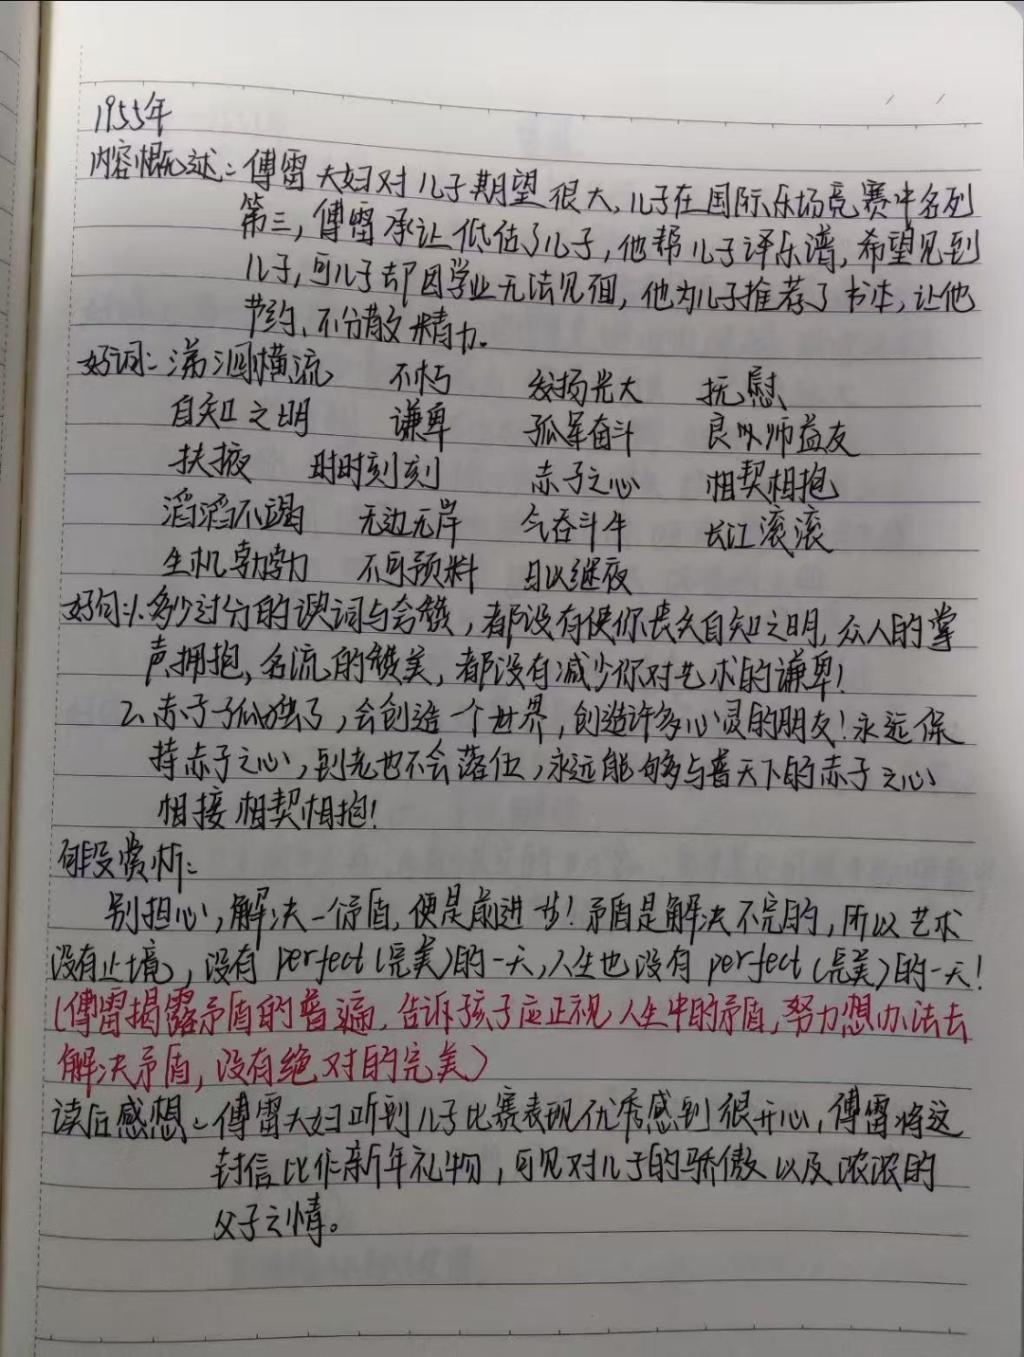 1955年
内容概述：傅雷夫妇对儿子期望很大，儿子在国际乐场竞赛中名列
第三，傅雷承让低估了儿子，他帮儿子译乐谱，希望见到
儿子，可儿子却因学业无法见面，他为儿子推荐了书本，让他
节约、不分散精力。
好词：涕泗横流 不朽 发扬光大 抚慰
自知之明 谦卑 孤军奋斗 良师益友
扶掖 时时刻刻 赤子之心 相契相抱
滔滔不竭 无边无岸 气吞斗牛 长江滚滚
生机勃勃 不可预料 日以继夜
好句：1.多少过分的谀词与夸赞，都没有使你丧失自知之明，众人的掌
声拥抱，名流的赞美，都没有减少你对艺术的谦卑！
2.赤子孤独了，会创造一个世界，创造许多心灵的朋友！永远保
持赤子之心，到老也不会落伍，永远能够与普天下的赤子之心
相接相契相抱！
句段赏析：
别担心，解决一个矛盾，便是前进一步！矛盾是解决不完的，所以艺术
没有止境，没有perfect（完美）的一天，人生也没有perfect（完美）的一天！
（傅雷揭露矛盾的普遍，告诉孩子应正视人生中的矛盾，努力想办法去
解决矛盾，没有绝对的完美）
读后感想：傅雷夫妇听到儿子比赛表现优秀感到很开心，傅雷将这
封信比作新年礼物，可见对儿子的骄傲以及浓浓的
父子之情。